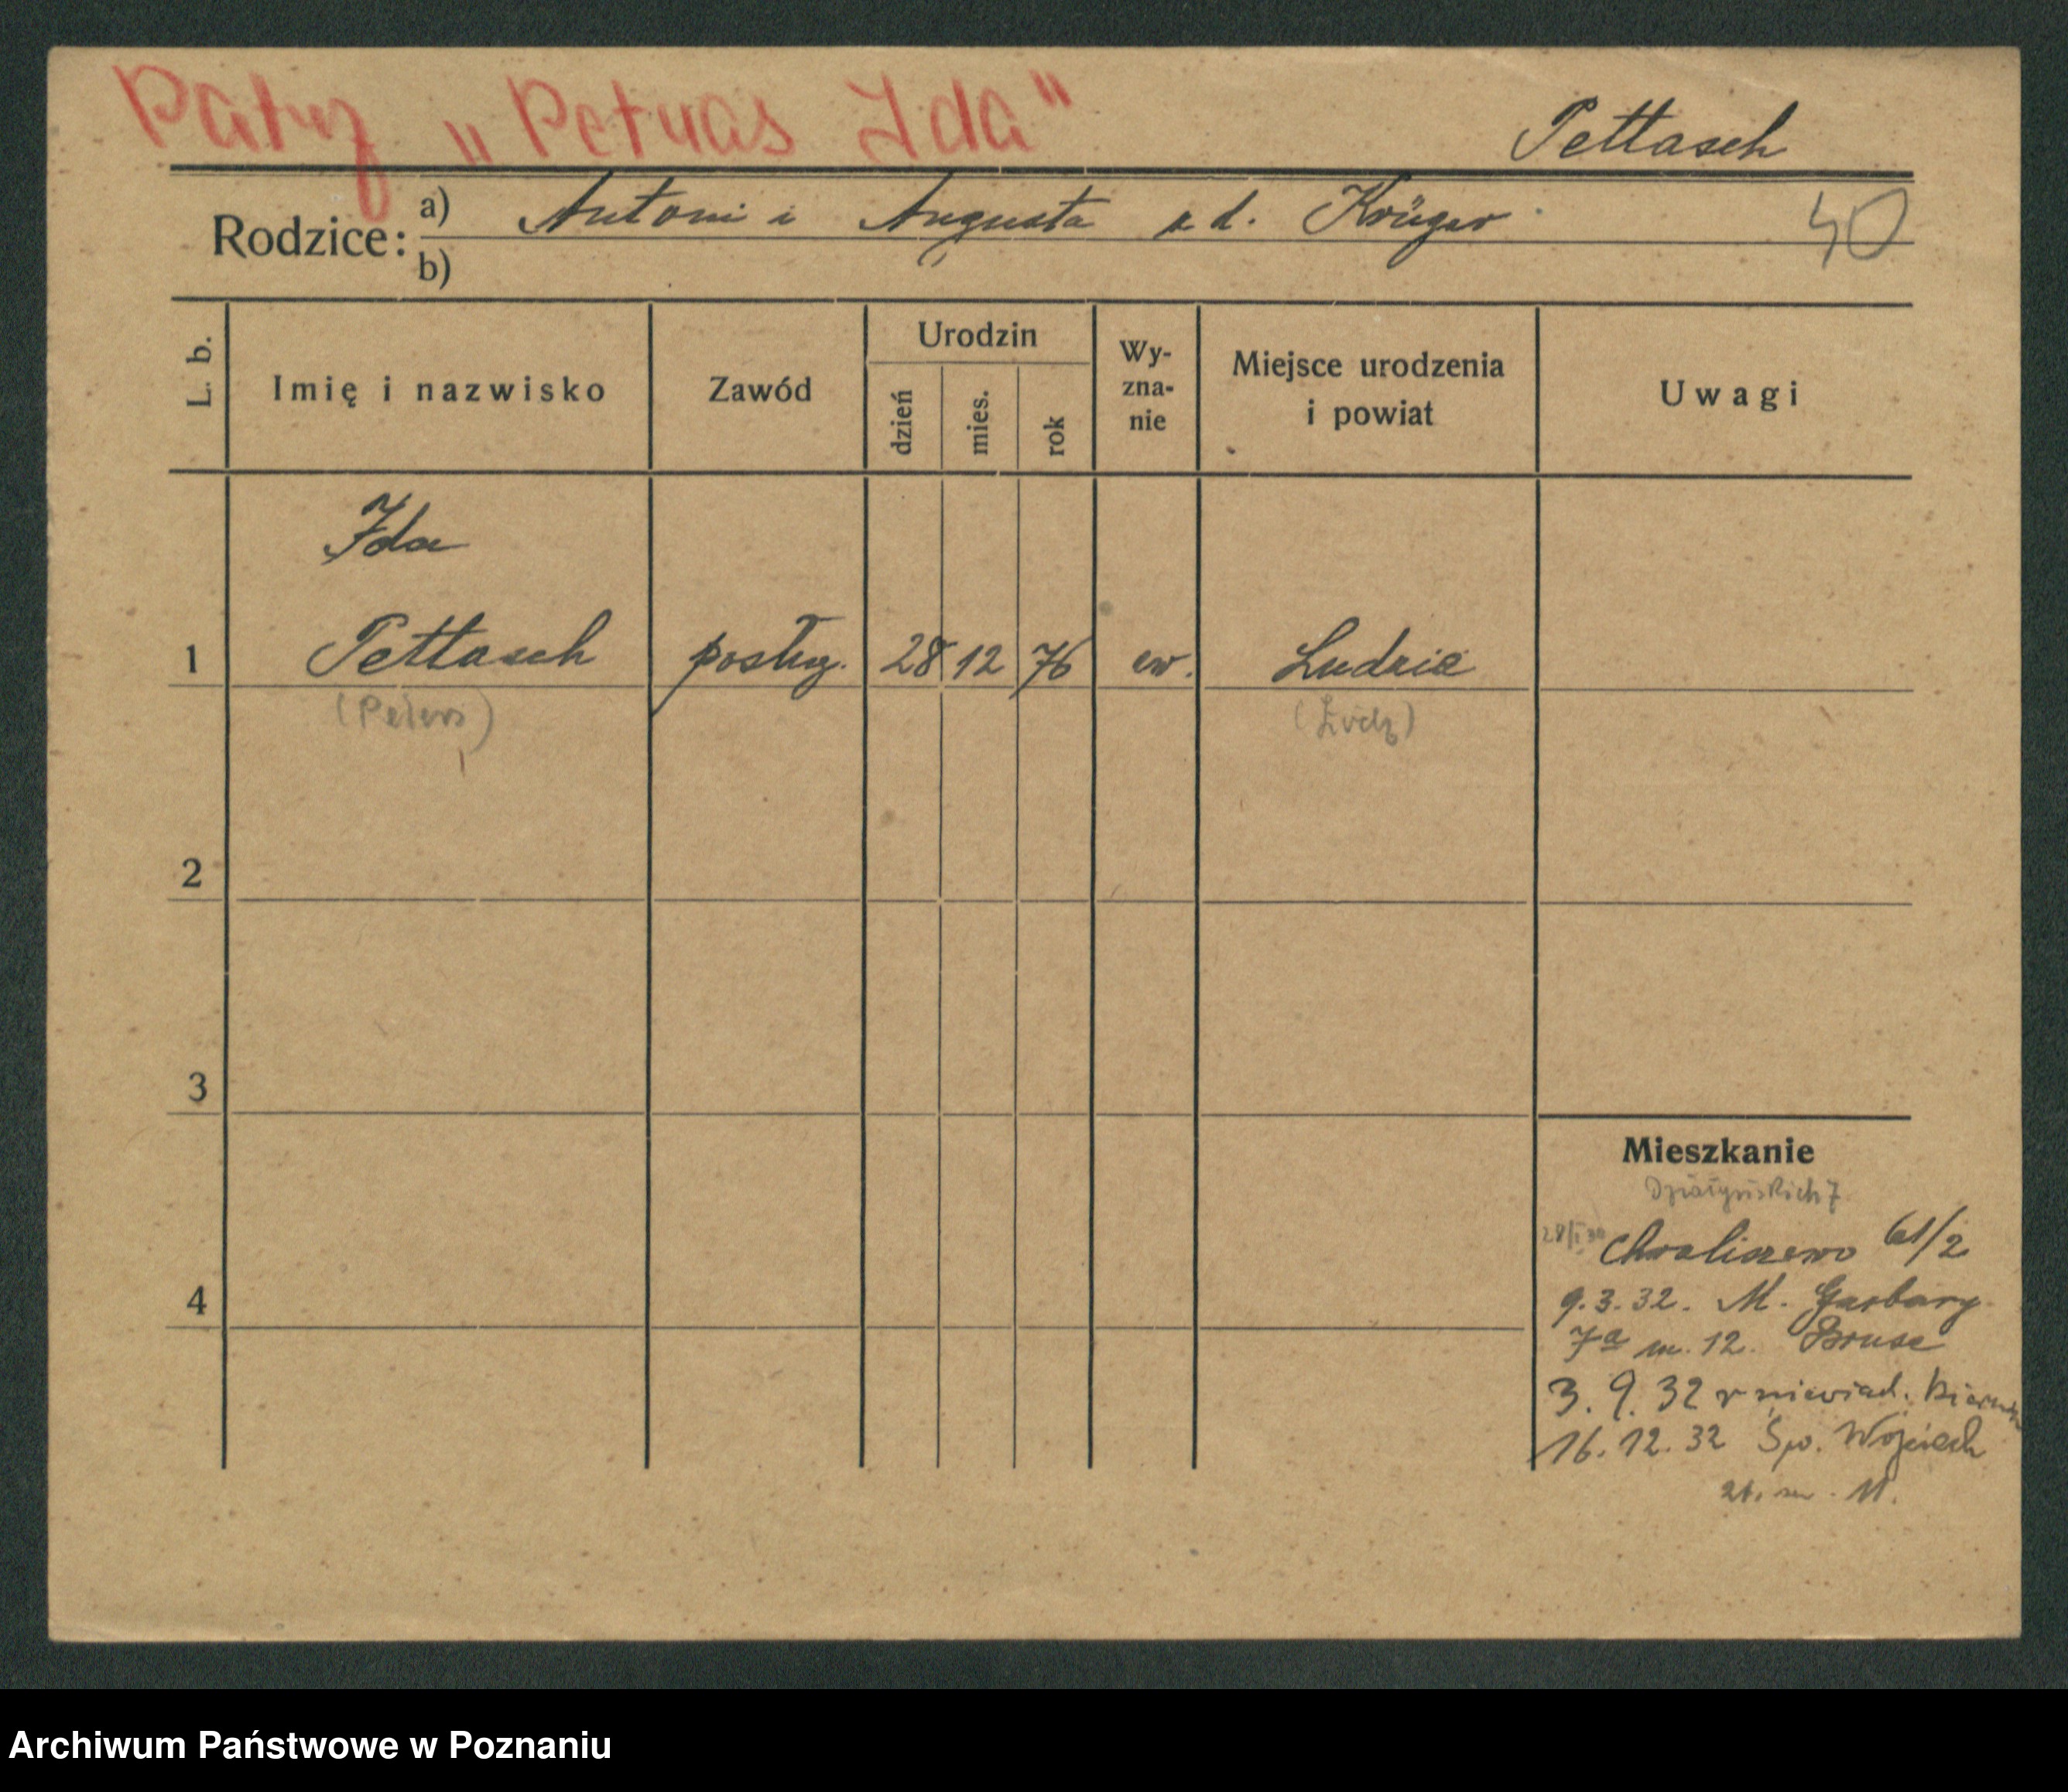 Patrz „Petras Ida"
Pettasch
Rodzice:
a) Antoni i Augusta z d. Krüger
40
b)
L. b.
Imię i nazwisko
Zawód
Urodzin
dzień
mies.
rok
Wy-
zna-
nie
Miejsce urodzenia
i powiat
Uwagi
Ida
1 Pettasch posług. 28 12 76 ew. Ludzic
(Łódź)
2
3
Mieszkanie
Działyńskich 7
Chwaliszewo 61/2
4
9.3.32. M. Garbary
7a m. 12. Bruse
3.9.32 niewiad.
16.12.32 Św. Wojciech
m. 11.
Archiwum Państwowe w Poznaniu